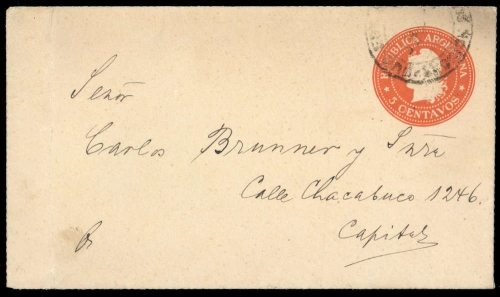 REPUBLICA ARGENTINA
5 CENTAVOS
Señor
Carlos Brunner y
Calle Chacabuco 1246.
Capital